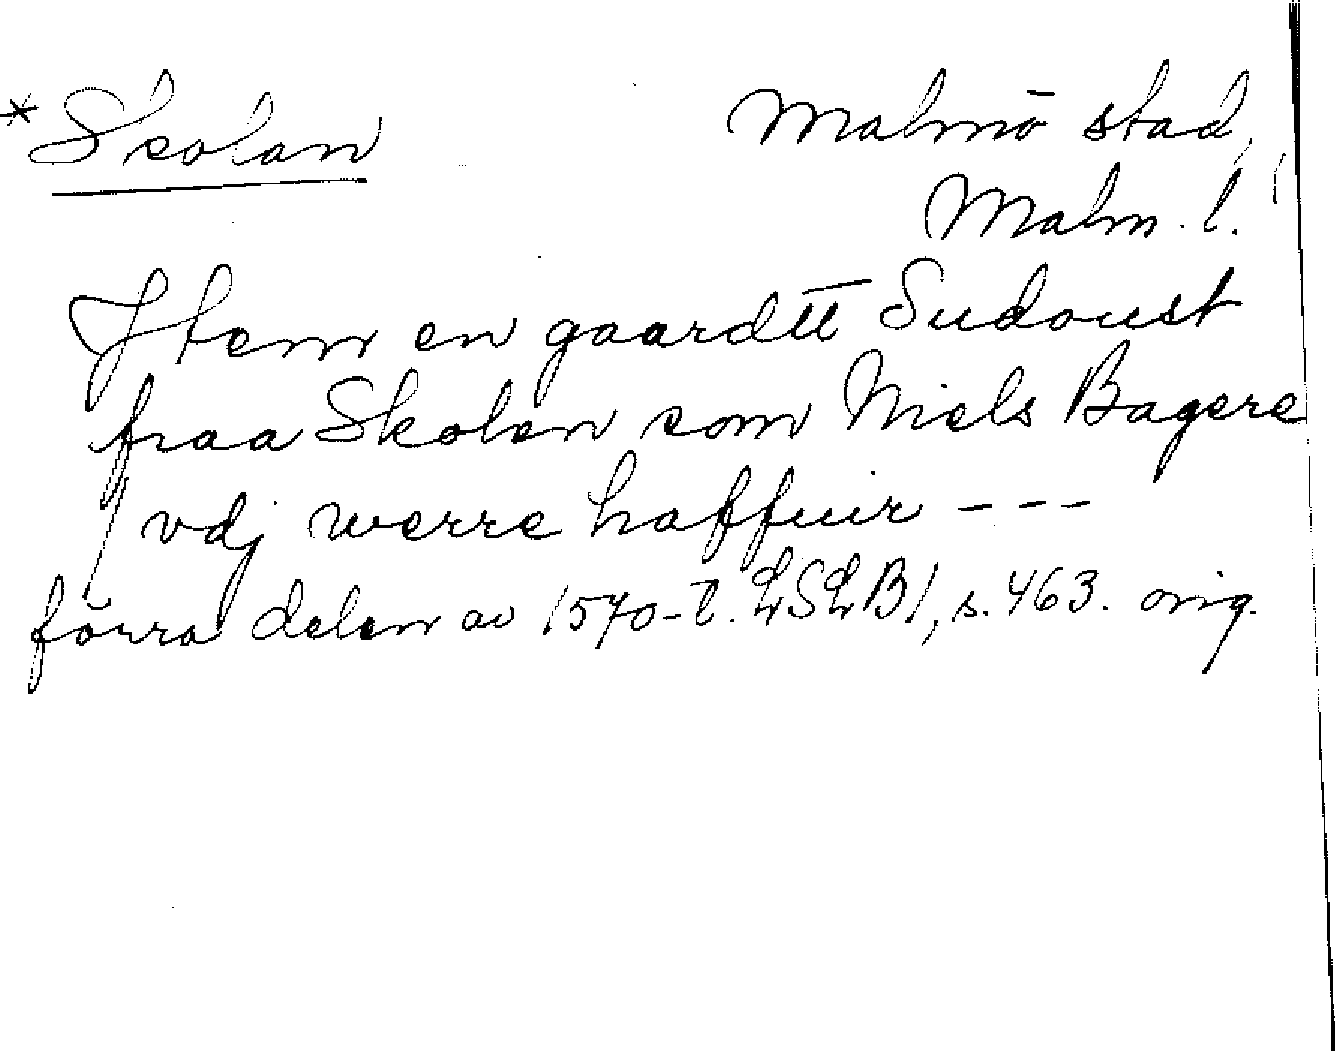 *Skolan
Malmö stad,
Malm. l.
Jtem en gaardtt Sudoust
fraa Skolen som Niels Bagere
vdj werre haffuir ---
förra delen av 1570-t. LSLB1, s. 463. orig.